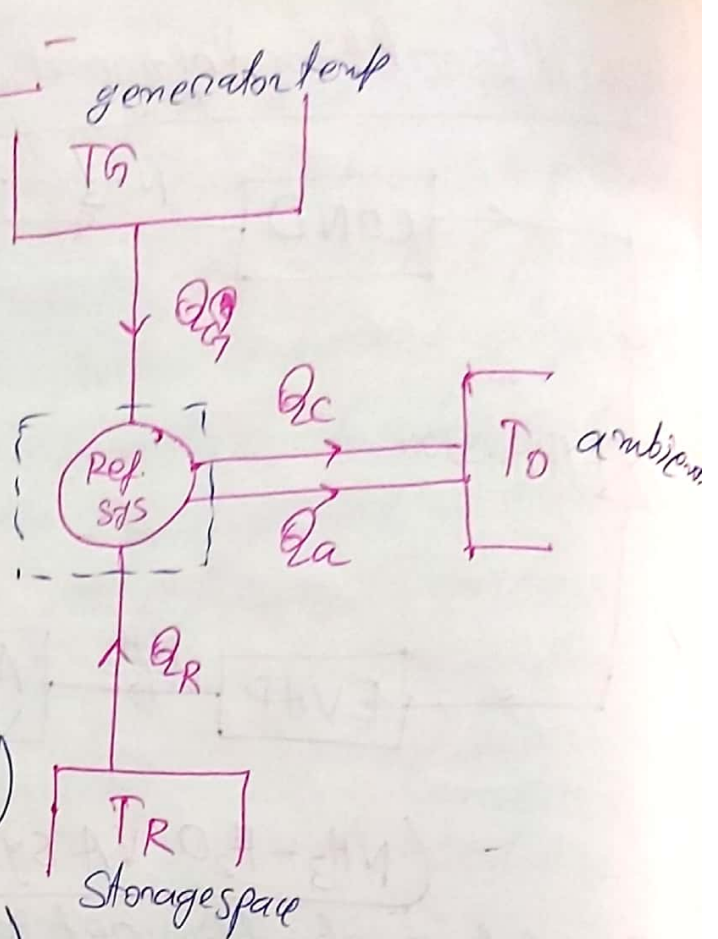 generator temp
TG
QG
Qc
Ref.
sys
To ambien
Qa
QR
TR
Storage space